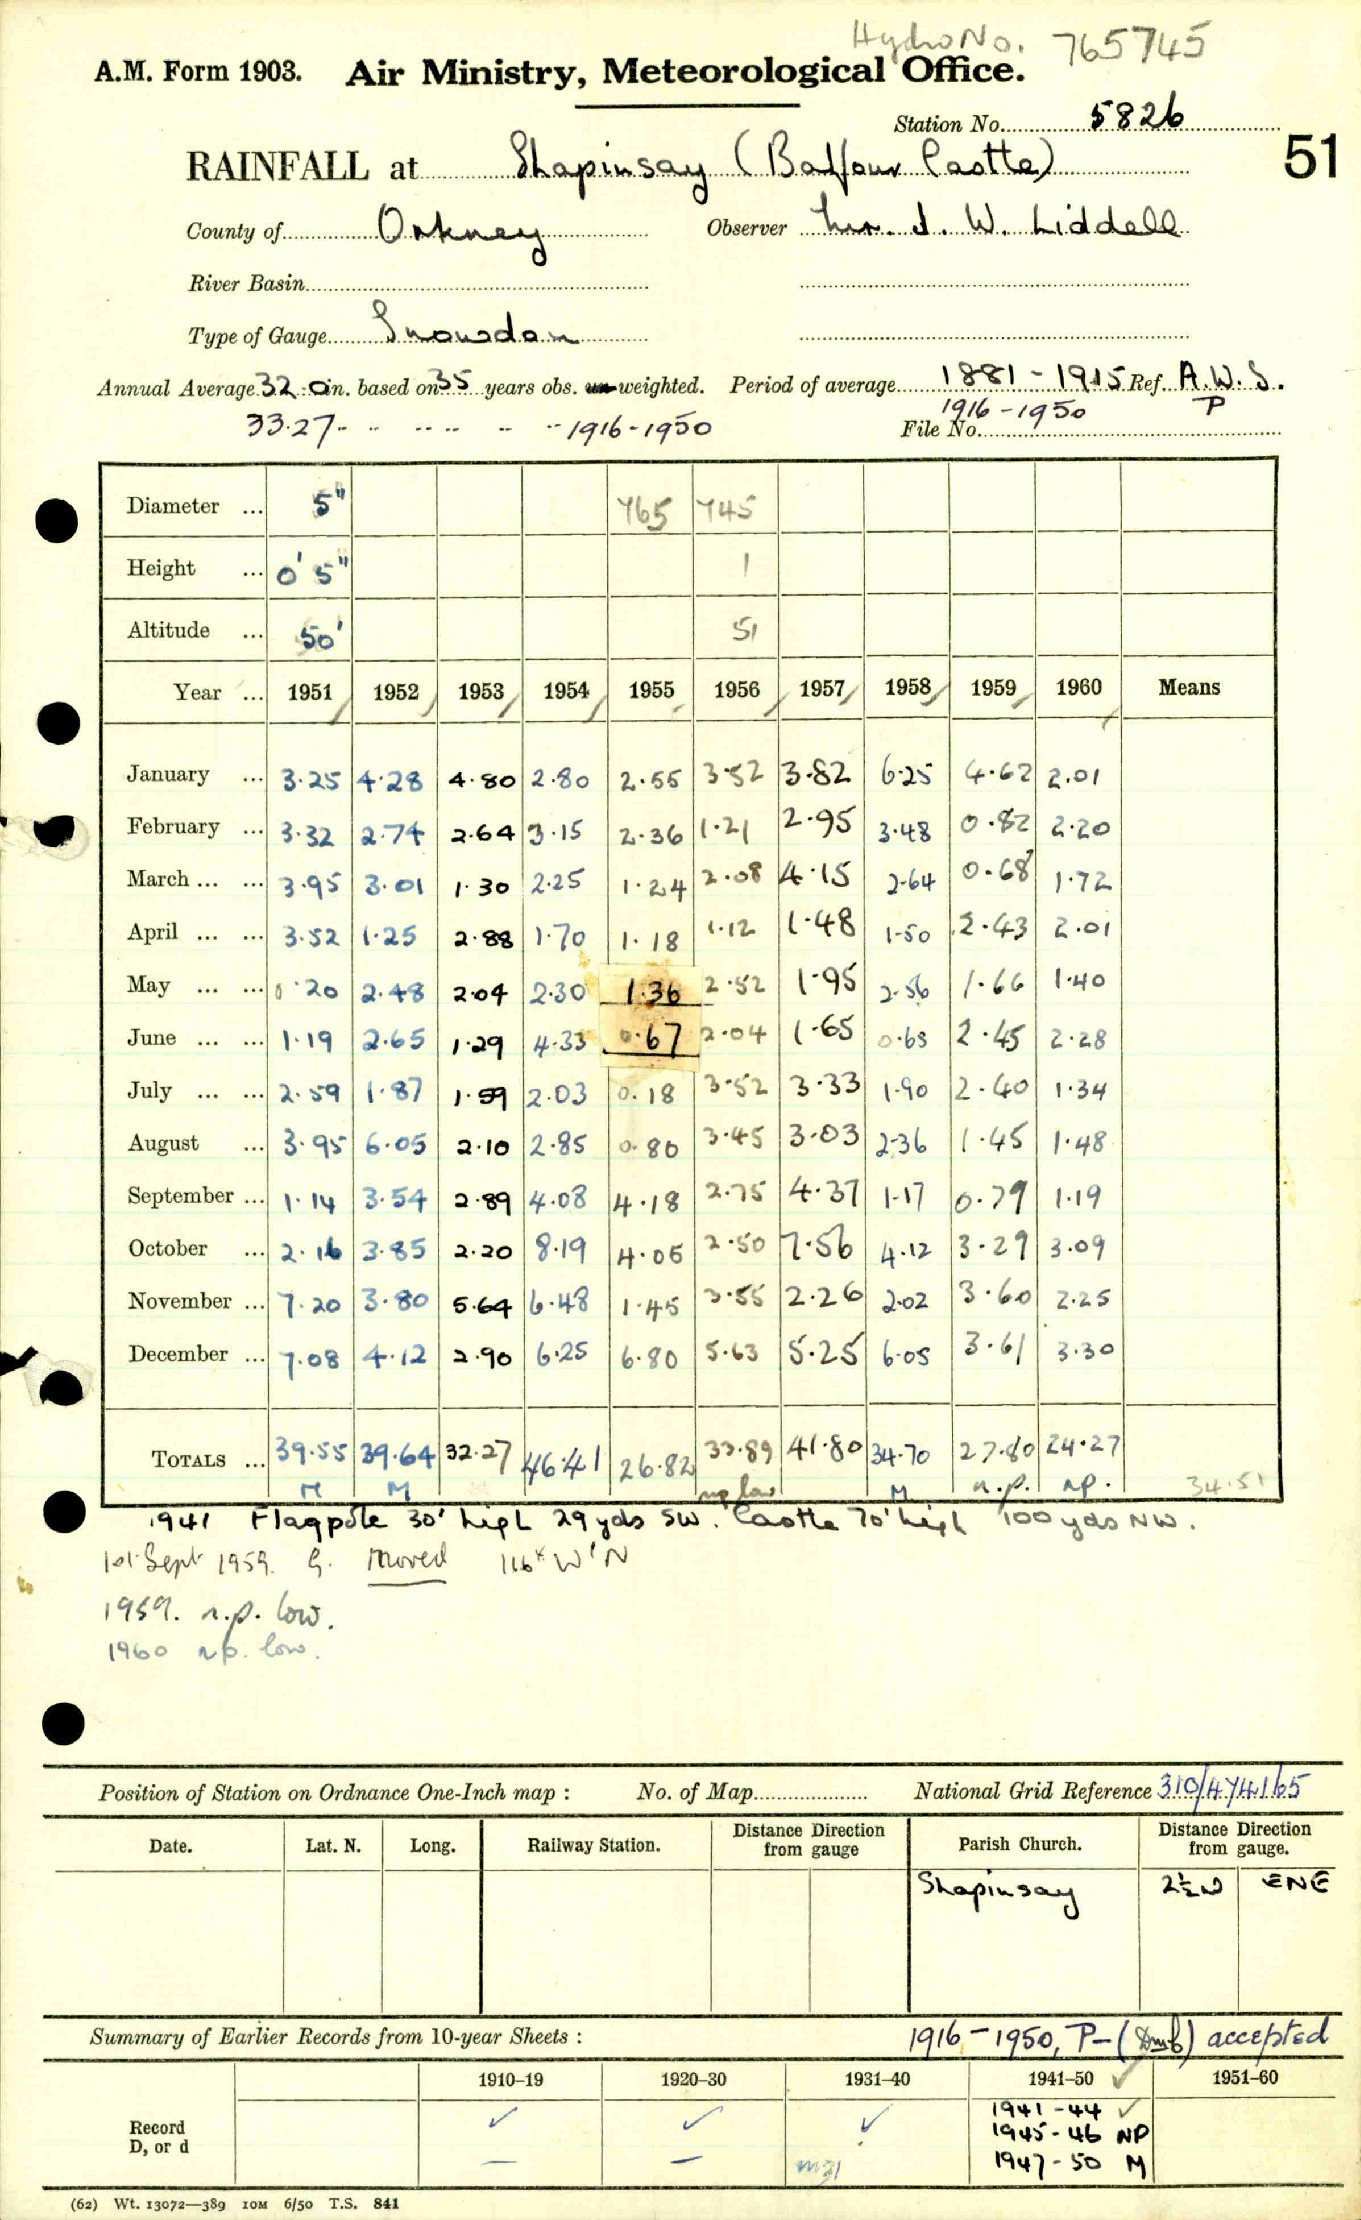 Hydro No. 765745
A.M. Form 1903. Air Ministry, Meteorological Office.
Station No. 5826
RAINFALL at Shapinsay (Balfour Castle) 51
County of Orkney Observer J. W. Liddell
River Basin
Type of Gauge Snowdon
Annual Average 32.0 in. based on 35 years obs. un-weighted. Period of average 1881-1915 Ref. A.W.S.
33.27 " " " " " " 1916-1950 1916-1950 P
File No.
Diameter ... 5" 765 745
Height ... 0' 5" 1
Altitude ... 50' 51
Year ... 1951 1952 1953 1954 1955 1956 1957 1958 1959 1960 Means
January ... 3.25 4.28 4.80 2.80 2.55 3.52 3.82 6.25 4.62 2.01
February ... 3.32 2.74 2.64 3.15 2.36 1.21 2.95 3.48 0.82 2.20
March ... ... 3.95 3.01 1.30 2.25 1.24 2.08 4.15 2.64 0.68 1.72
April ... ... 3.52 1.25 2.88 1.70 1.18 1.12 1.48 1.50 2.43 2.01
May ... ... 0.20 2.48 2.04 2.30 1.36 2.52 1.95 2.56 1.66 1.40
June ... ... 1.19 2.65 1.29 4.33 0.67 2.04 1.65 0.65 2.45 2.28
July ... ... 2.59 1.87 1.59 2.03 0.18 3.52 3.33 1.90 2.40 1.34
August ... 3.95 6.05 2.10 2.85 0.80 3.45 3.03 2.36 1.45 1.48
September ... 1.14 3.54 2.89 4.08 4.18 2.75 4.37 1.17 0.79 1.19
October ... 2.16 3.85 2.20 8.19 4.05 2.50 7.56 4.12 3.29 3.09
November ... 7.20 3.80 5.64 6.48 1.45 3.55 2.26 2.02 3.60 2.25
December ... 7.08 4.12 2.90 6.25 6.80 5.63 5.25 6.05 3.61 3.30
TOTALS ... 39.55 39.64 32.27 46.41 26.82 33.89 41.80 34.70 27.80 24.27
M M np low M n.p. np. 34.51
1941 Flagpole 30' high 29 yds SW. Castle 70' high 100 yds NW.
1st Sept 1959. G. moved 116x W'N
1959. n.p. low.
1960 np. low.
Position of Station on Ordnance One-Inch map : No. of Map National Grid Reference 310/474165
Date. Lat. N. Long. Railway Station. Distance Direction from gauge Parish Church. Distance Direction from gauge.
Shapinsay 2½ ENE
Summary of Earlier Records from 10-year Sheets : 1916-1950, P- accepted
1910–19 1920–30 1931–40 1941–50 ✓ 1951–60
Record ✓ ✓ ✓ 1941-44 ✓
D, or d 1945-46 NP
— — 1947-50 M
(62) Wt. 13072—389 10M 6/50 T.S. 841